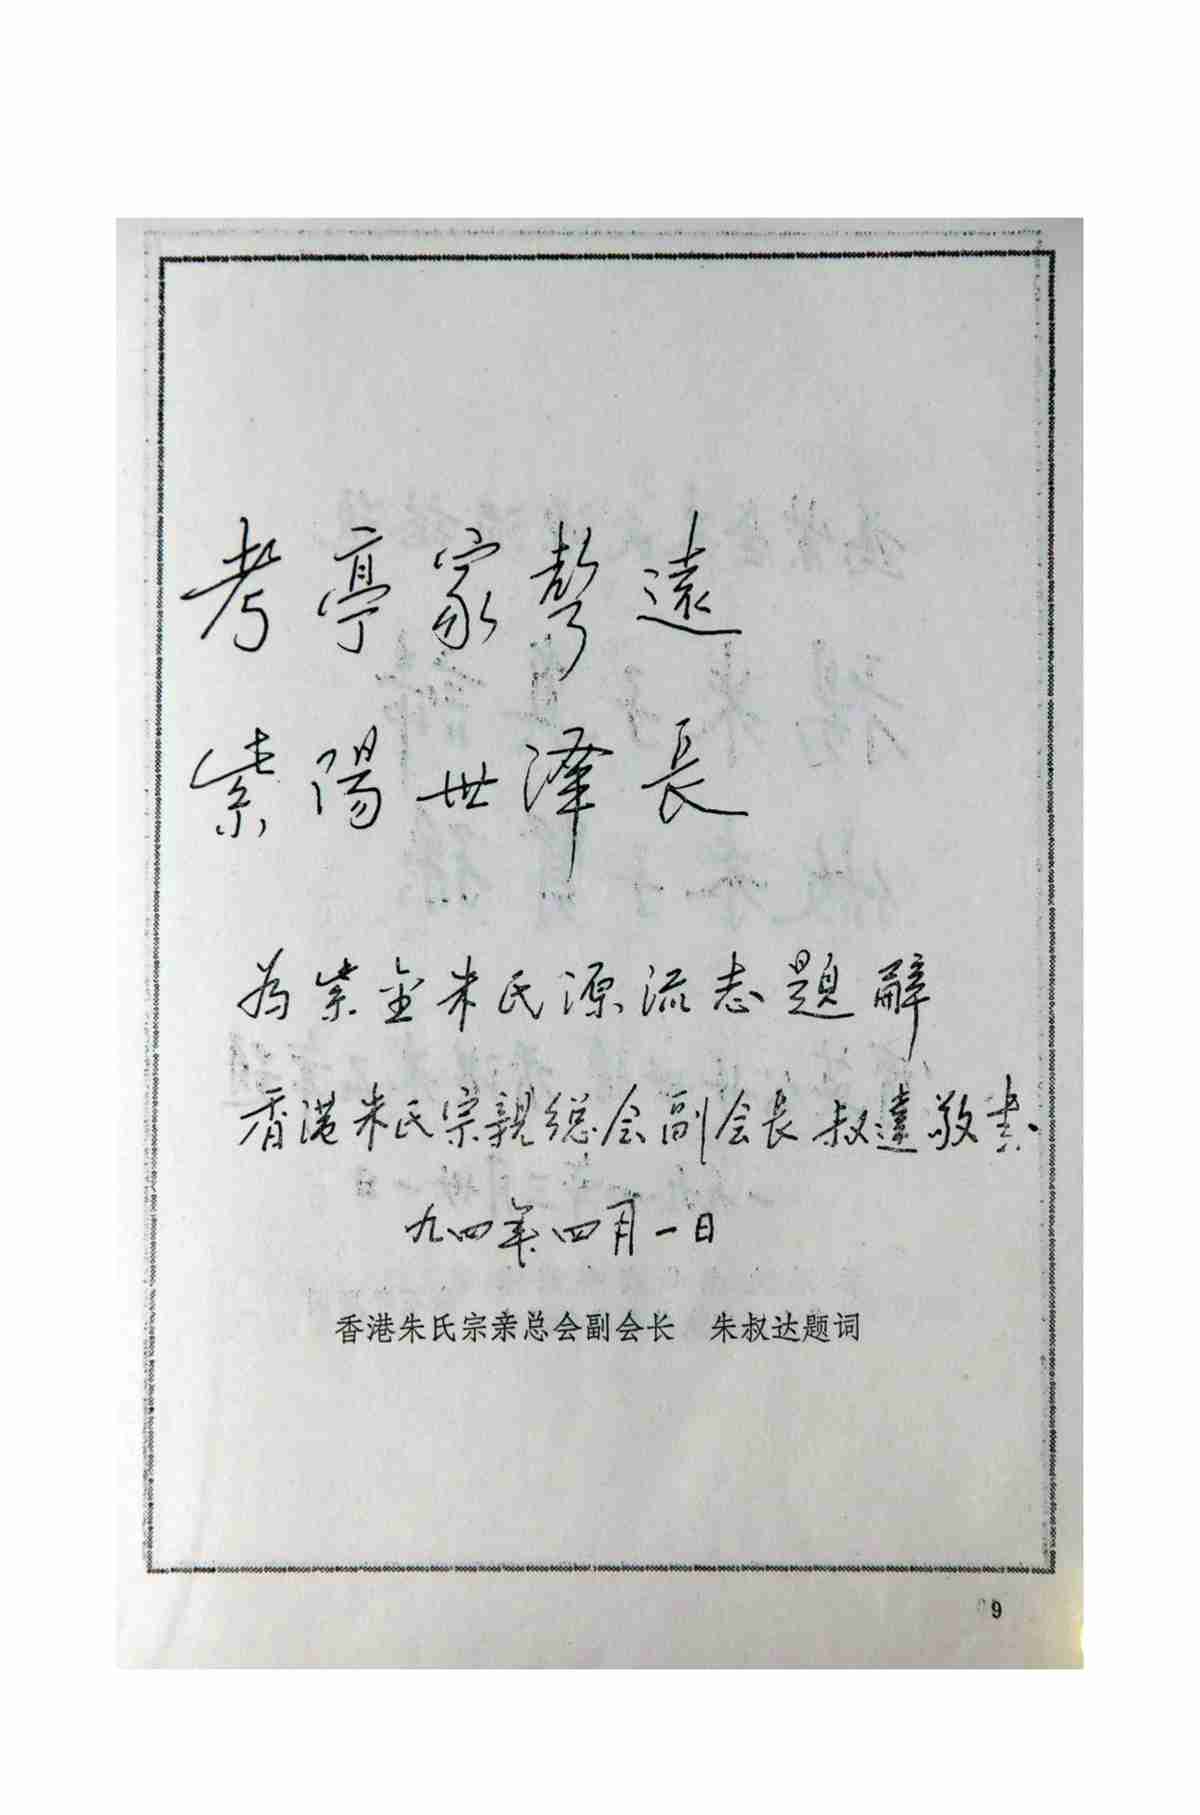 考亭家聲遠
紫陽世澤長
為紫金朱氏源流志題辭
香港朱氏宗親总会副会長叔達敬書
九四年四月一日
香港朱氏宗亲总会副会长 朱叔达题词
9